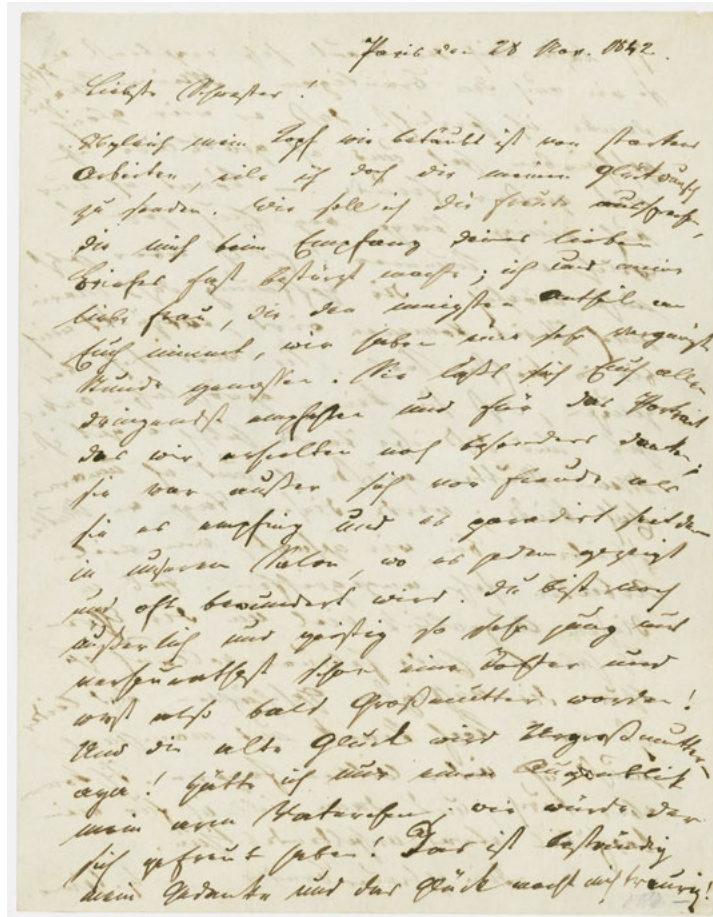 Paris den 28 Nov. 1842.
Liebste Schwester!
Obgleich mein Kopf wie betäubt ist von starkem
Arbeiten, eile ich doch dir meinen Glückwunsch
zu senden. Wie soll ich die Freude aussprechen,
die mich beim Empfang deines lieben
Briefes fast bestürzt machte; ich und meine
liebe Frau, die den innigsten Antheil an
Euch nimmt, wir haben eine sehr vergnügte
Stunde genossen. Sie läßt sich Euch allen
dringendst empfehlen und für das Portrait
das wir erhielten noch besonders danken;
sie war außer sich vor Freude als
sie es empfing und es paradirt seitdem
in unserem Salon, wo es jedem gezeigt
und oft bewundert wird. Du bist noch
äußerlich und geistig so sehr jung und
verheurathest schon eine Tochter und
wirst also bald Großmutter werden!
Und die alte Glück wird Urgroßmutter
Hätte ich nur einen Augenblick
mein arm Vaterchen, wie würde der
sich gefreut haben! Das ist beständig
mein Gedanke und das Glück macht mich traurig!